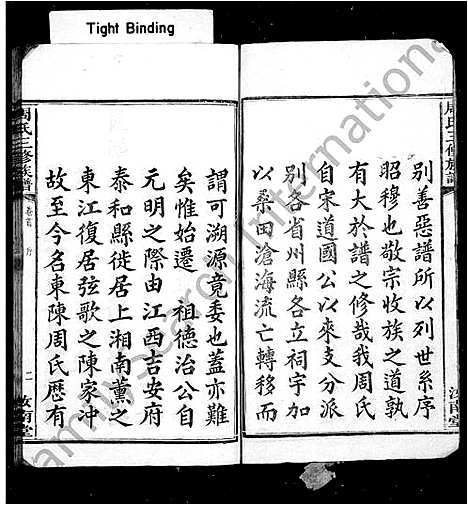 Tight Binding
周氏三修族譜
別善惡譜所以列世系序
昭穆也敬宗收族之道孰
有大於譜之修哉我周氏
自宋道國公以來支分派
別各省州縣各立祠宇加
以桑田滄海流亡轉移而
汝南堂
謂可溯源竟委也蓋亦難
矣惟始遷 祖德治公自
元明之際由江西吉安府
泰和縣徙居上湘南薰之
東江復居弦歌之陳家沖
故至今名東陳周氏歷有
周氏三修族譜
卷首
序
二
汝南堂